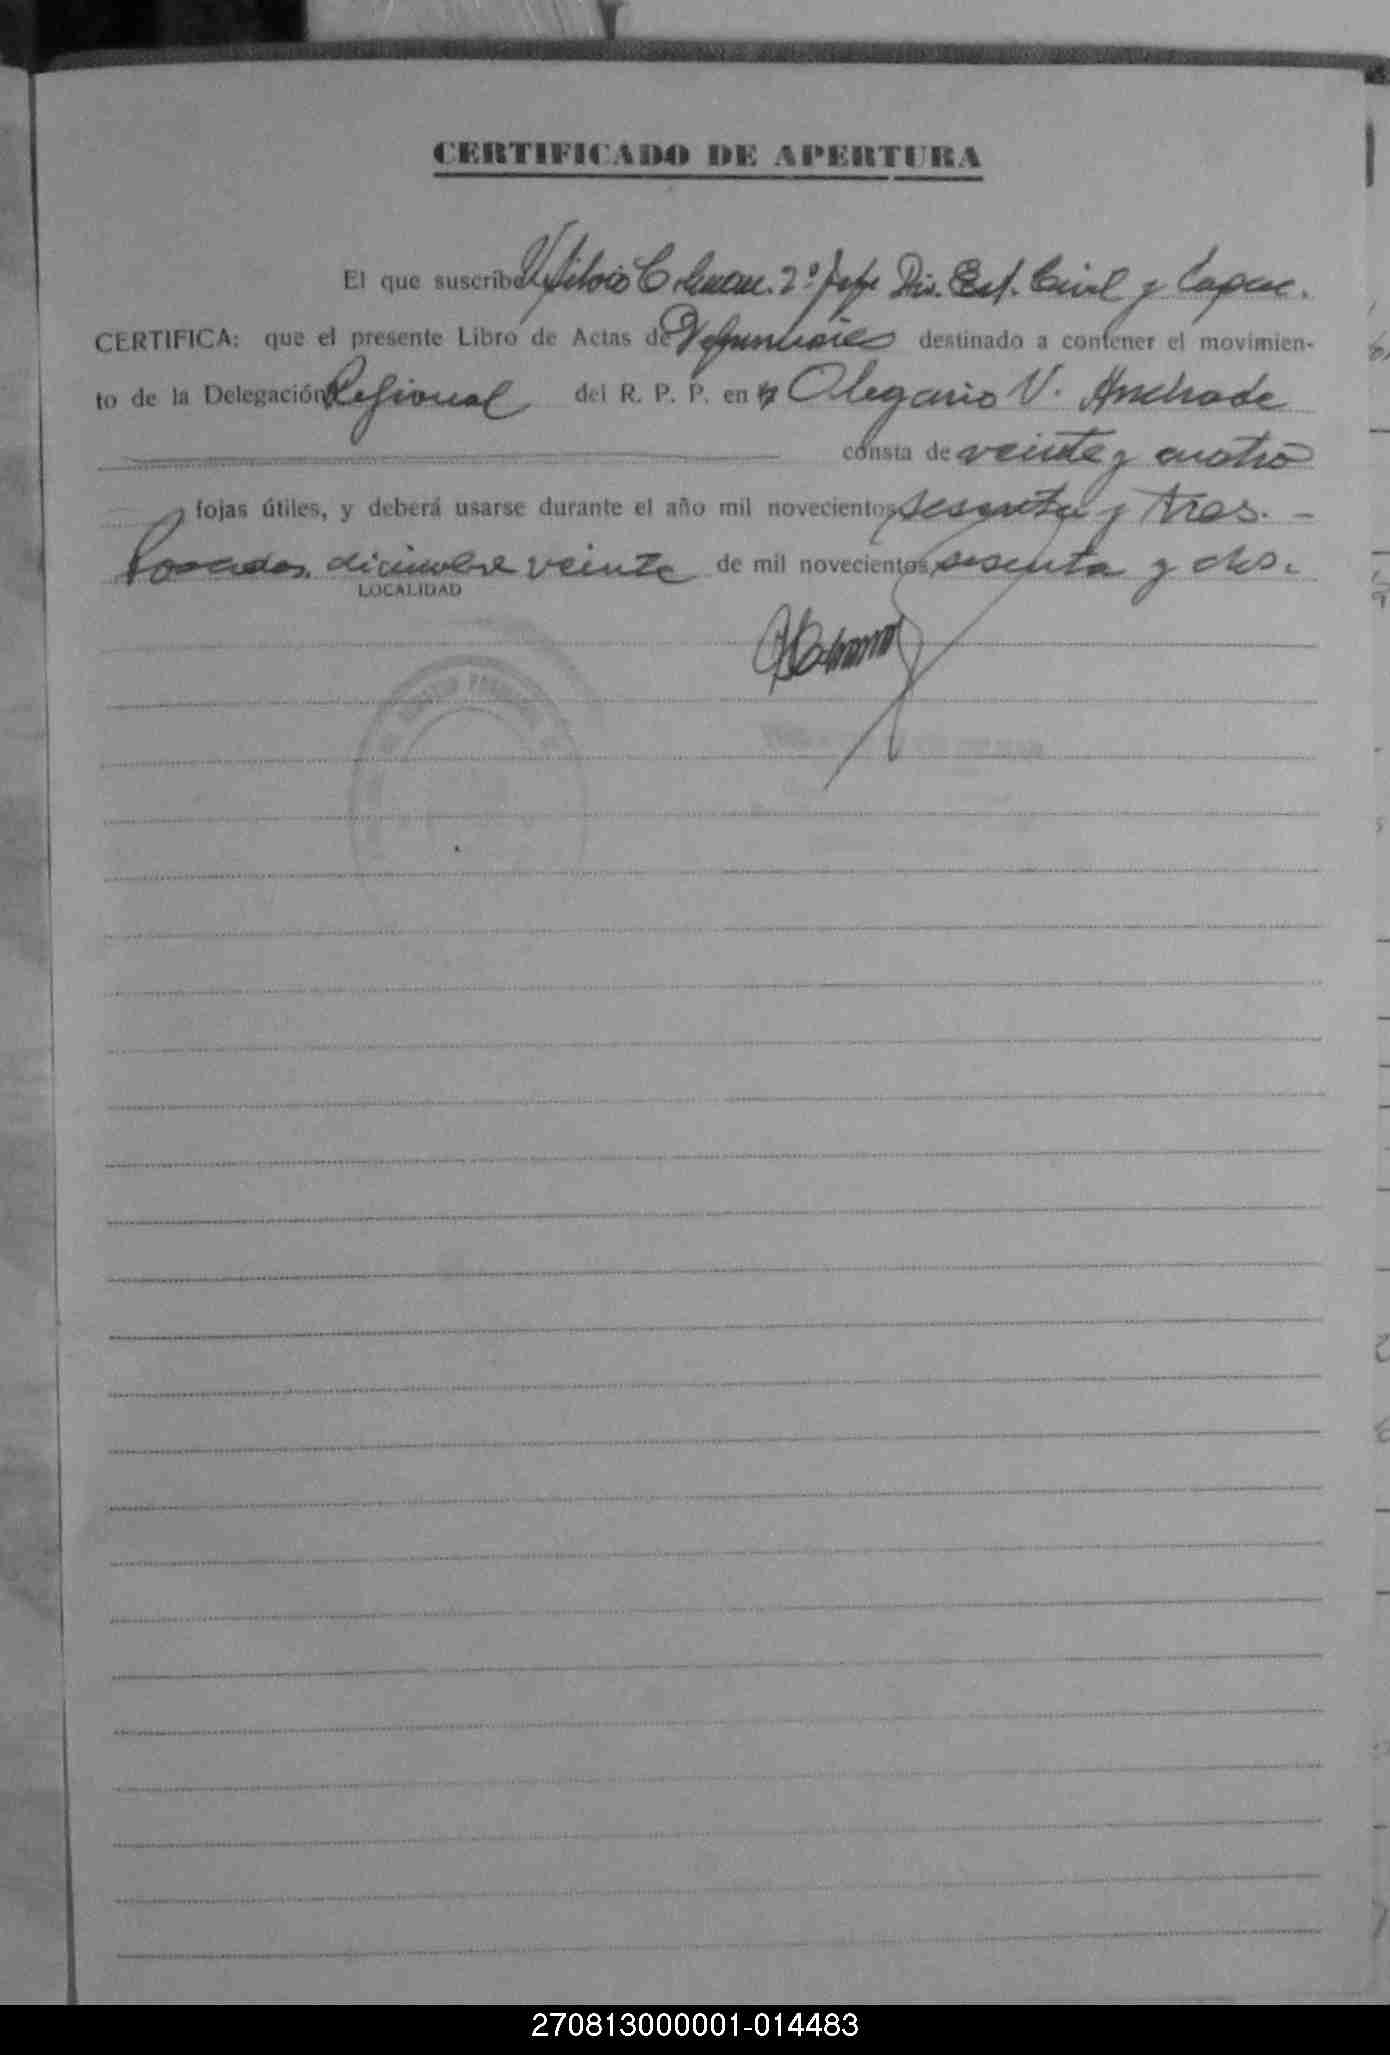 CERTIFICADO DE APERTURA
El que suscribe Silvio C. 2º Jefe Div. Est. Civil y Capac.
CERTIFICA: que el presente Libro de Actas de Defunciones destinado a contener el movimien-
to de la Delegación Regional del R. P. P. en Olegario V. Andrade
consta de veinte y cuatro
fojas útiles, y deberá usarse durante el año mil novecientos sesenta y tres. -
Posadas, diciembre veinte de mil novecientos sesenta y dos.
LOCALIDAD
270813000001-014483